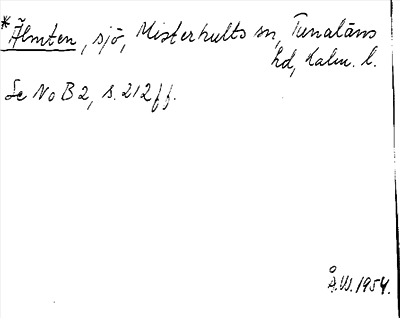 *Älmten, sjö, Misterhults sn, Tunaläns
hd, Kalm. l.
Se NoB 2, s. 212 ff.
Å.W. 1954.